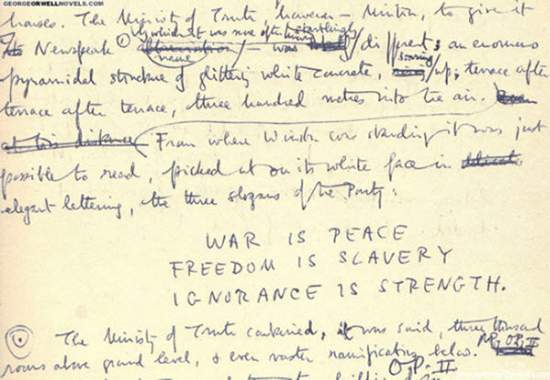 GEORGEORWELLNOVELS.COM
houses. The Ministry of Truth, however – Minitru, to give it
its Newspeak name – was startlingly different; an enormous
pyramidal structure of glittering white concrete, soaring up, terrace after
terrace after terrace, three hundred metres into the air.
at this distance From where Winston was standing it was just
possible to read, picked out on its white face in
elegant lettering, the three slogans of the Party:
WAR IS PEACE
FREEDOM IS SLAVERY
IGNORANCE IS STRENGTH.
The Ministry of Truth contained, it was said, three thousand
rooms above ground level, & even vaster ramifications below.